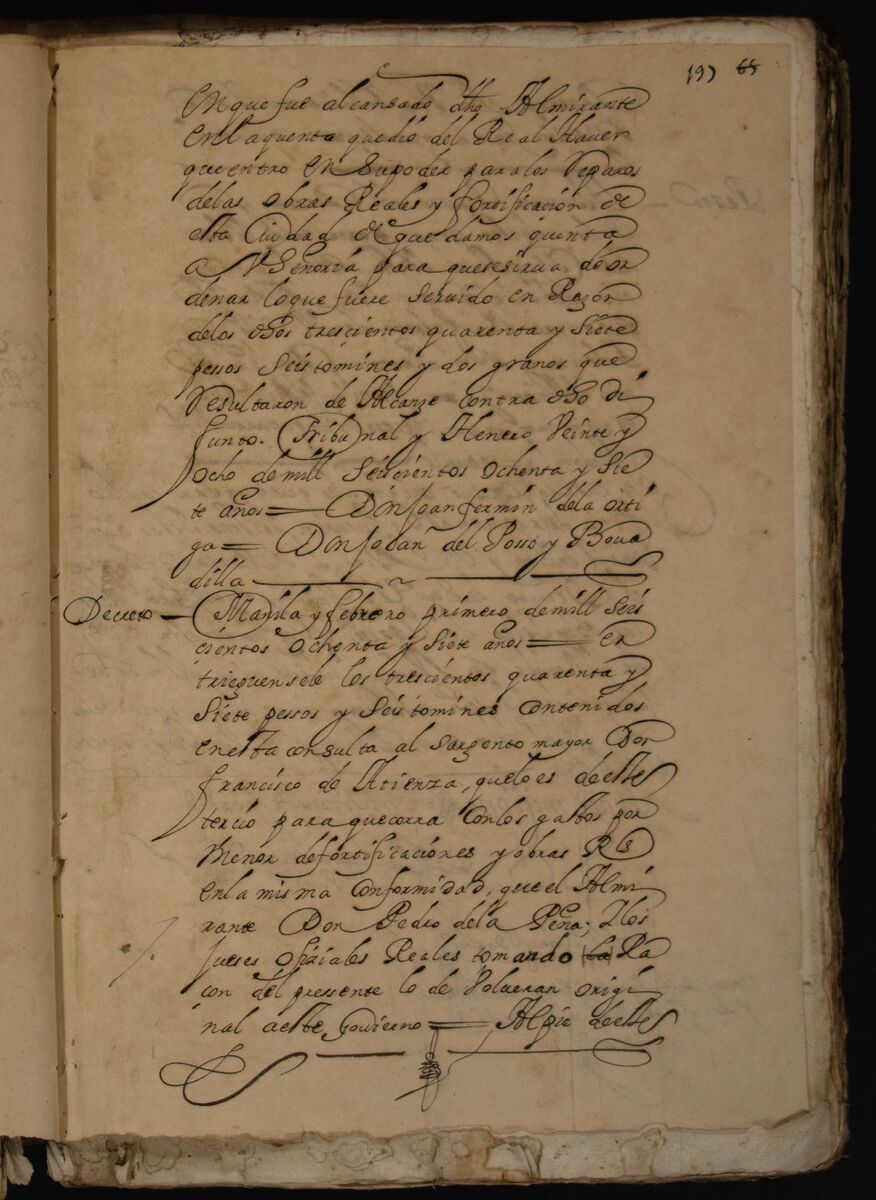 197 65
en que fue alcansado dho Almirante
en la quenta que dió del Real Hauer
que entro en su poder para los Reparos
delas obras Reales y fortificación de
esta Ciudad de que damos quenta
a VSeñoria para que se sirua de or
denar lo que fuere servido en Razon
delos dhos trescientos quarenta y siete
pessos seis tomines y dos granos que
Resultaron de Alcanze contra dho di
funto. Tribunal y Henero Veinte y
ocho de mill seiscientos ochenta y sie
te años = Don Joan fermin dela orti
ga = Don Jo del Posso y Boua
dilla
Decreto — Manila y febrero primero de mill seis
cientos ochenta y siete años = en
trieguensele los trescientos quarenta y
siete pessos y seis tomines contenidos
en esta consulta al sargento mayor Don
francisco de Atienza, que lo es de este
tercio para que corra con los gastos por
menor de fortificaciones y obras Rs
en la misma conformidad, que el Almi
rante Don Pedro de la Peña; Y los
jueses ofiziales Reales tomando la Ra
con del pressente lo de Volueran origi
nal a este gouierno = Al pie de este